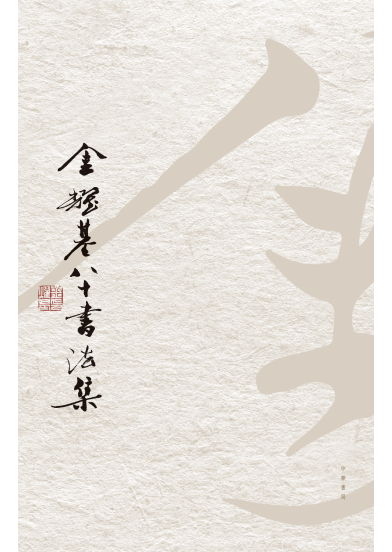 金耀基八十書法集
中華書局